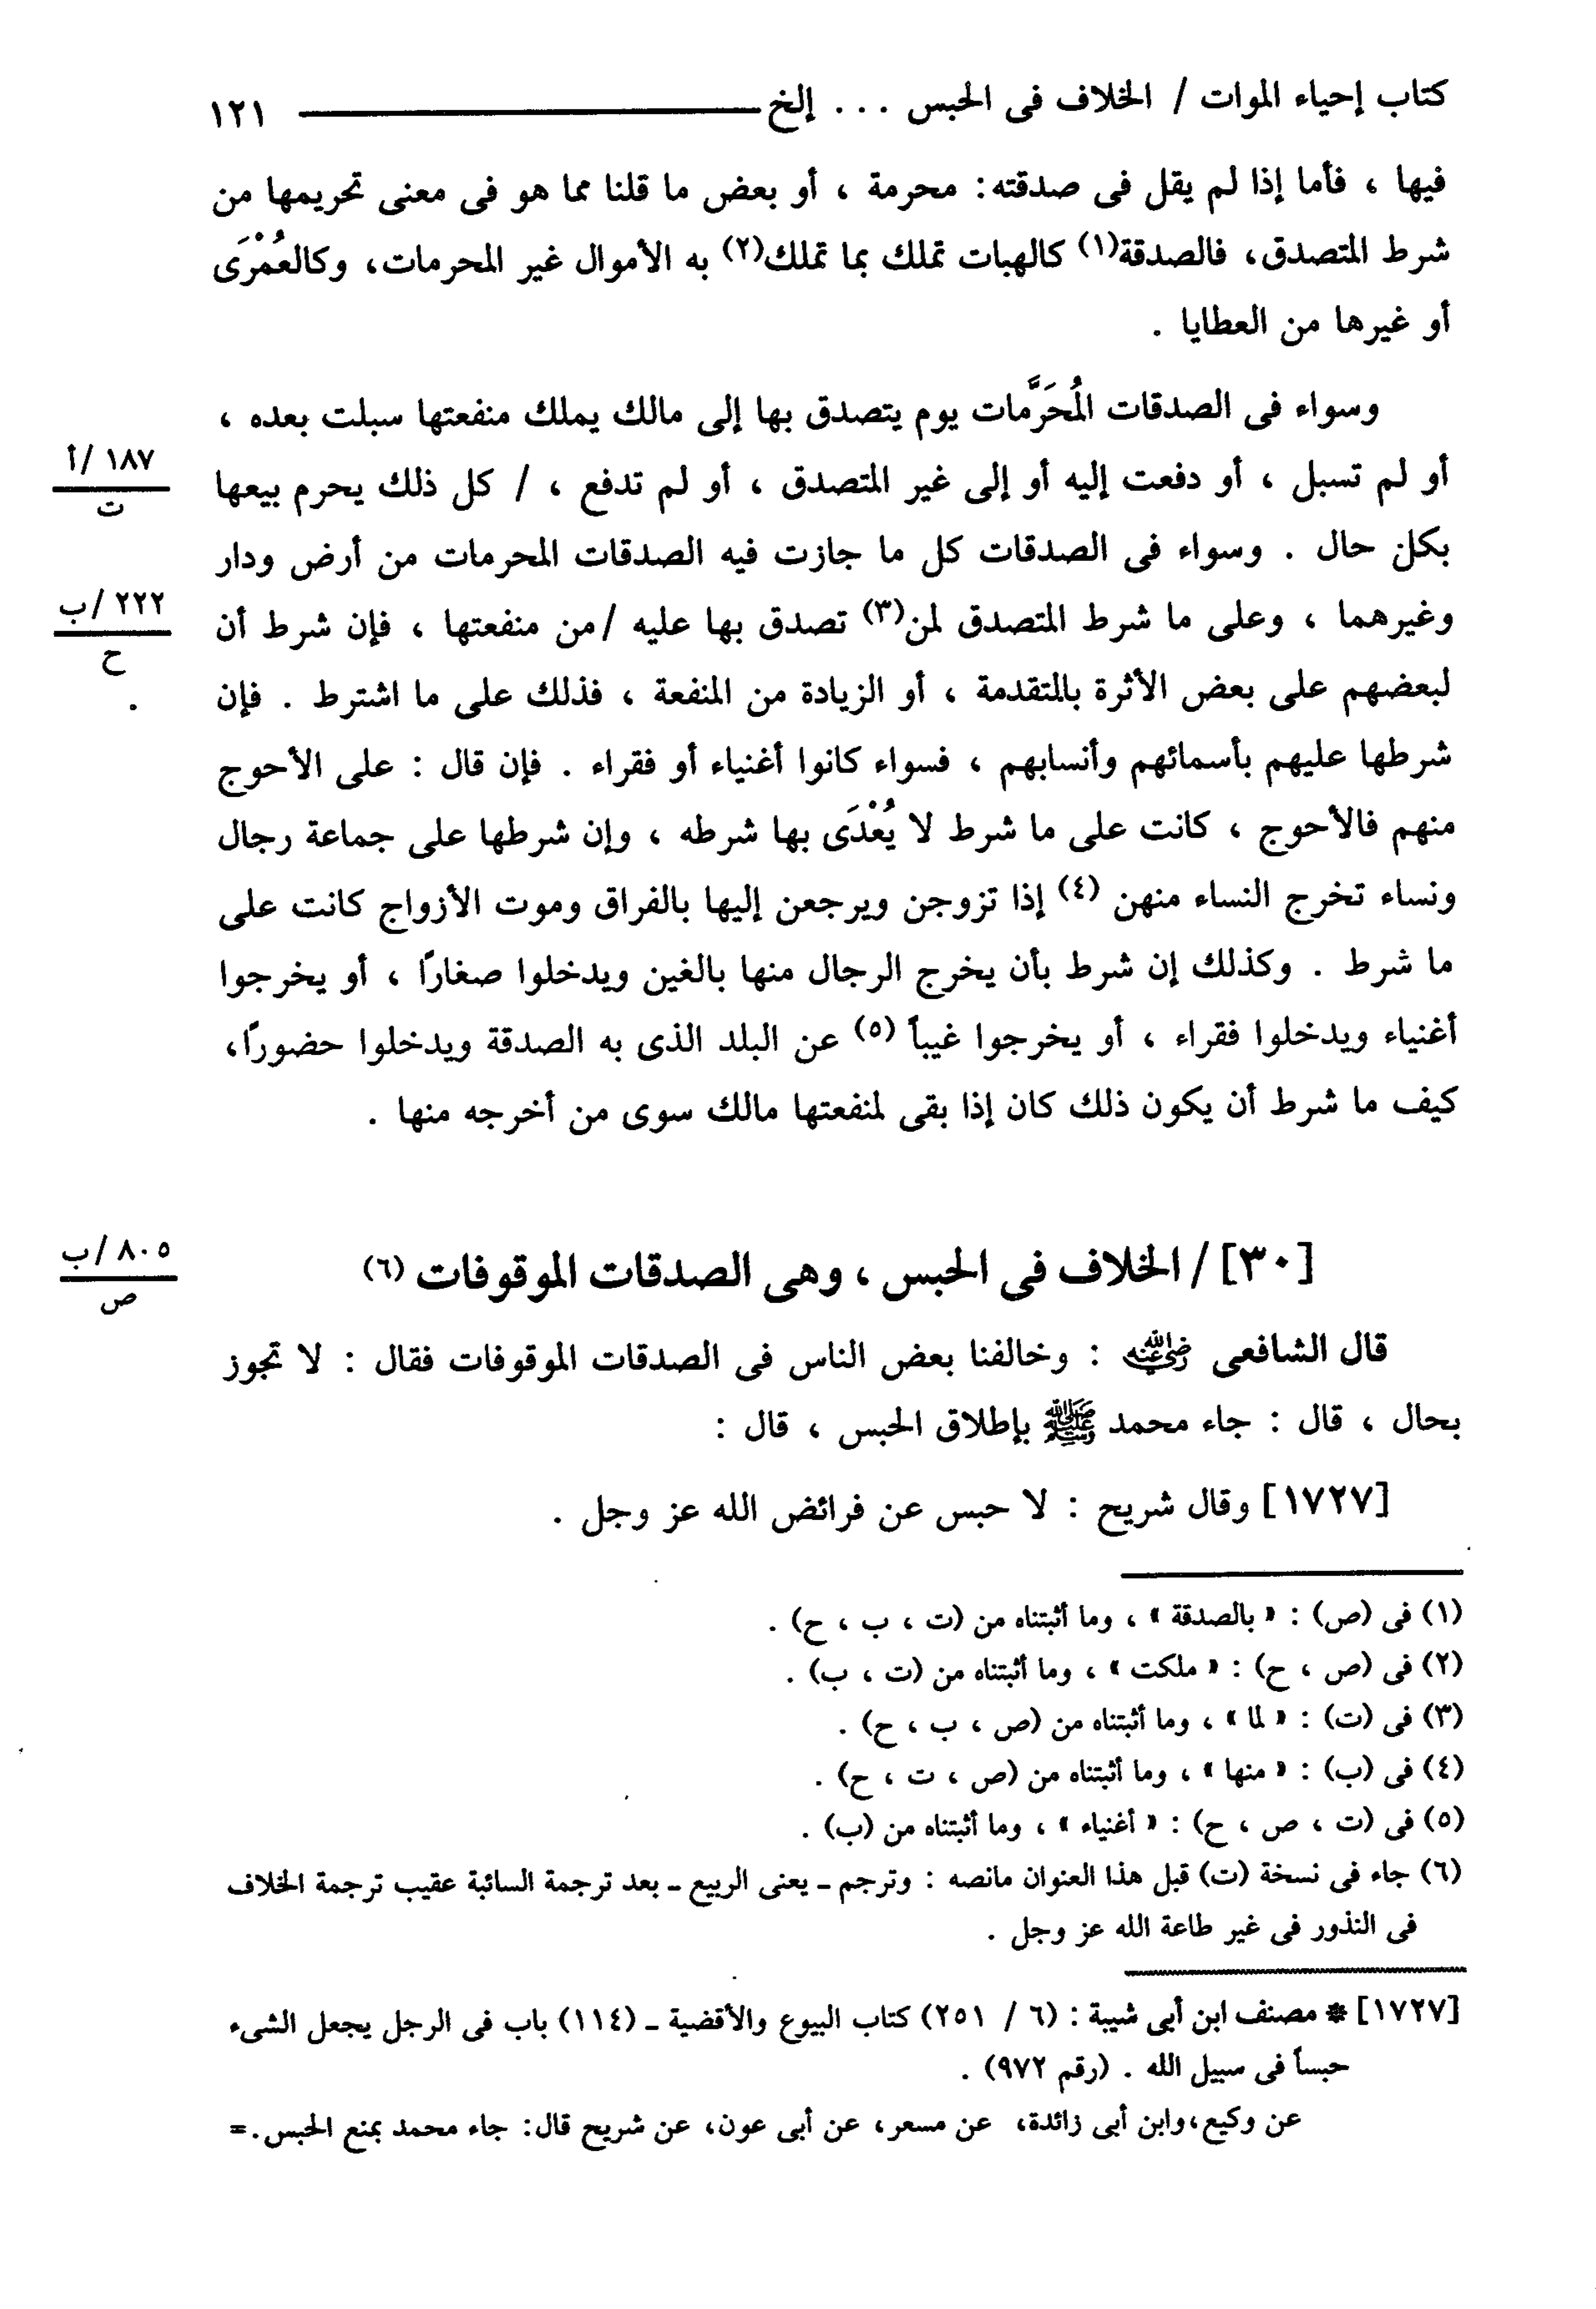 كتاب إحياء الموات / الخلاف فى الحبس . . . إلخ ١٢١
فيها ، فأما إذا لم يقل فى صدقته : محرمة ، أو بعض ما قلنا مما هو فى معنى تحريمها من
شرط المتصدق، فالصدقة(١) كالهبات تملك بما تملك(٢) به الأموال غير المحرمات، وكالعُمْرَى
أو غيرها من العطايا .
وسواء فى الصدقات المُحَرَّمات يوم يتصدق بها إلى مالك يملك منفعتها سبلت بعده ،
أو لم تسبل ، أو دفعت إليه أو إلى غير المتصدق ، أو لم تدفع ، / كل ذلك يحرم بيعها
١٨٧ /أ
ت
بكل حال . وسواء فى الصدقات كل ما جازت فيه الصدقات المحرمات من أرض ودار
وغيرهما ، وعلى ما شرط المتصدق لمن(٣) تصدق بها عليه /من منفعتها ، فإن شرط أن
٢٢٢ /ب
ح
لبعضهم على بعض الأثرة بالمتقدمة ، أو الزيادة من المنفعة ، فذلك على ما اشترط . فإن
شرطها عليهم بأسمائهم وأنسابهم ، فسواء كانوا أغنياء أو فقراء . فإن قال : على الأحوج
منهم فالأحوج ، كانت على ما شرط لا يُعْدَى بها شرطه ، وإن شرطها على جماعة رجال
ونساء تخرج النساء منهن (٤) إذا تزوجن ويرجعن إليها بالفراق وموت الأزواج كانت على
ما شرط . وكذلك إن شرط بأن يخرج الرجال منها بالغين ويدخلوا صغارًا ، أو يخرجوا
أغنياء ويدخلوا فقراء ، أو يخرجوا غيباً (٥) عن البلد الذى به الصدقة ويدخلوا حضورًا،
كيف ما شرط أن يكون ذلك كان إذا بقى لمنفعتها مالك سوى من أخرجه منها .
[٣٠] / الخلاف فى الحبس ، وهى الصدقات الموقوفات (٦)
٨٠٥ /ب
ص
قال الشافعى رضي الله عنه : وخالفنا بعض الناس فى الصدقات الموقوفات فقال : لا تجوز
بحال ، قال : جاء محمد ﷺ بإطلاق الحبس ، قال :
[١٧٢٧] وقال شريح : لا حبس عن فرائض الله عز وجل .
(١) فى (ص) : « بالصدقة » ، وما أثبتناه من (ت ، ب ، ح) .
(٢) فى (ص ، ح) : « ملكت » ، وما أثبتناه من (ت ، ب) .
(٣) فى (ت) : « لما » ، وما أثبتناه من (ص ، ب ، ح) .
(٤) فى (ب) : « منها » ، وما أثبتناه من (ص ، ت ، ح) .
(٥) فى (ت ، ص ، ح) : « أغنياء » ، وما أثبتناه من (ب) .
(٦) جاء فى نسخة (ت) قبل هذا العنوان مانصه : وترجم ـ يعنى الربيع ـ بعد ترجمة السائبة عقيب ترجمة الخلاف
فى النذور فى غير طاعة الله عز وجل .
[١٧٢٧] * مصنف ابن أبى شيبة : (٦ / ٢٥١) كتاب البيوع والأقضية ـ (١١٤) باب فى الرجل يجعل الشىء
حبساً فى سبيل الله . (رقم ٩٧٢) .
عن وكيع، وابن أبى زائدة، عن مسعر، عن أبى عون، عن شريح قال: جاء محمد بمنع الحبس. =